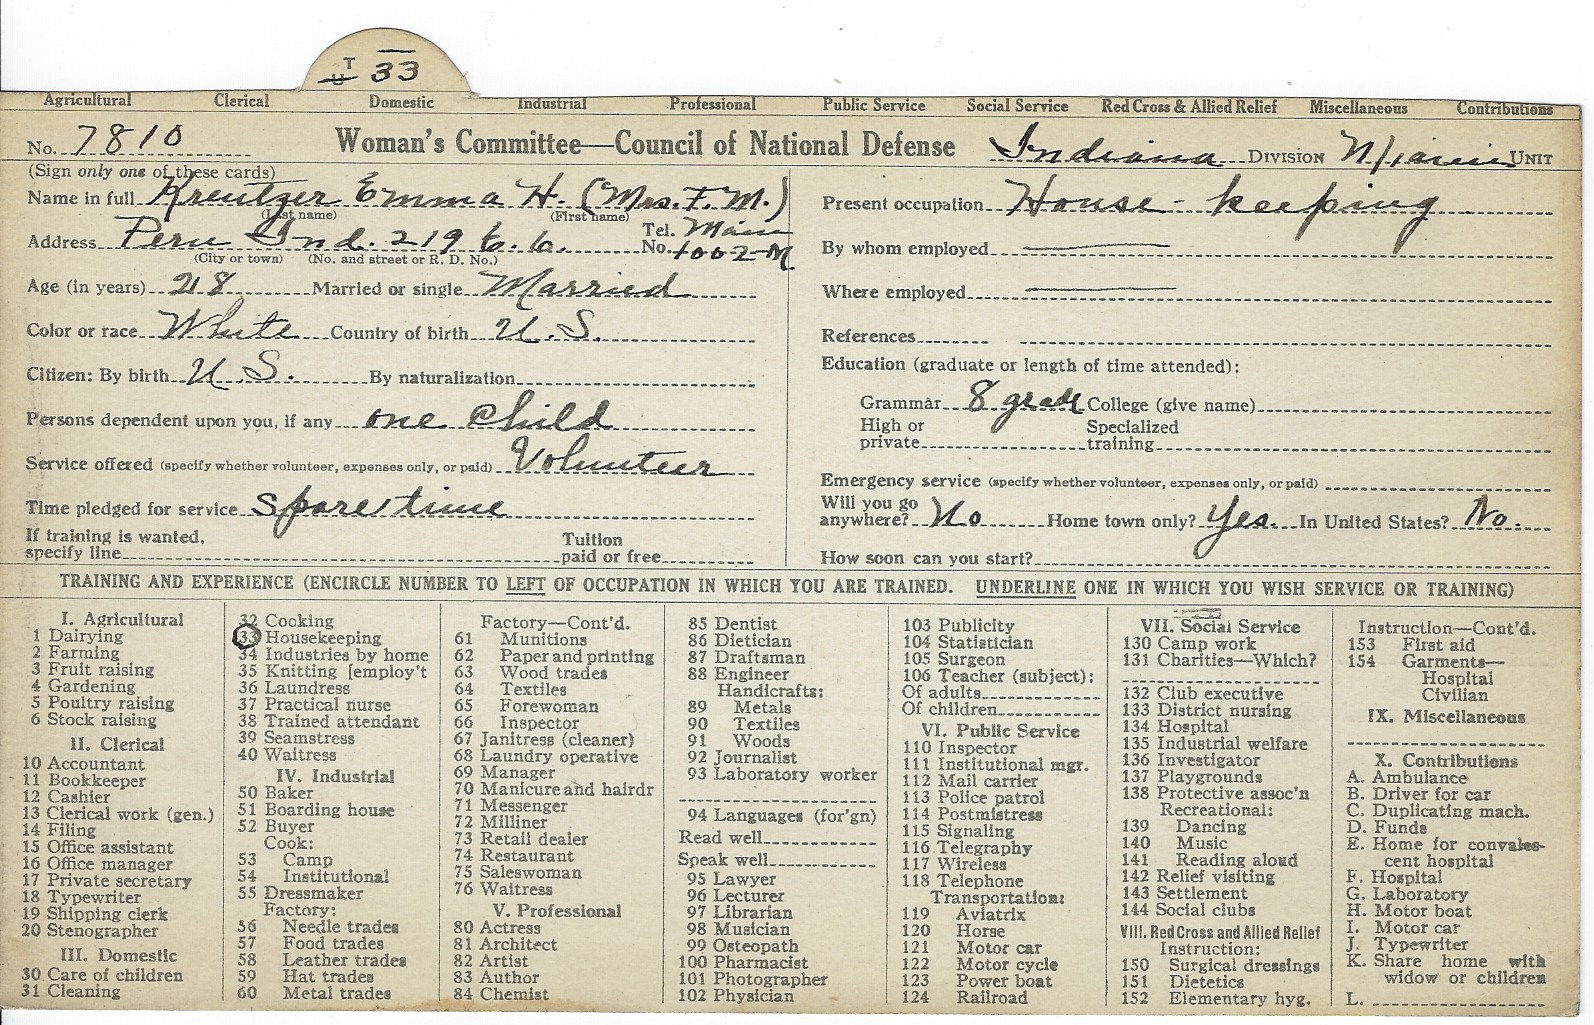 T
U 33
Agricultural Clerical Domestic Industrial Professional Public Service Social Service Red Cross & Allied Relief Miscellaneous Contributions
No. 7810 Woman's Committee—Council of National Defense Indiana DIVISION Miami UNIT
(Sign only one of these cards)
Name in full Kreutzer Emma H. (Mrs. F. M.)
(Last name) (First name)
Address Peru Ind. 219 E. 6. Tel. No. Main 1002-M
(City or town) (No. and street or R. D. No.)
Age (in years) 28 Married or single Married
Color or race White Country of birth U.S.
Citizen: By birth U.S. By naturalization
Persons dependent upon you, if any one child
Service offered (specify whether volunteer, expenses only, or paid) Volunteer
Time pledged for service spare time
If training is wanted, specify line Tuition paid or free
Present occupation House-keeping
By whom employed
Where employed
References
Education (graduate or length of time attended):
Grammar 8 grade College (give name)
High or private Specialized training
Emergency service (specify whether volunteer, expenses only, or paid)
Will you go anywhere? No Home town only? Yes. In United States? No.
How soon can you start?
TRAINING AND EXPERIENCE (ENCIRCLE NUMBER TO LEFT OF OCCUPATION IN WHICH YOU ARE TRAINED. UNDERLINE ONE IN WHICH YOU WISH SERVICE OR TRAINING)
I. Agricultural
1 Dairying
2 Farming
3 Fruit raising
4 Gardening
5 Poultry raising
6 Stock raising
II. Clerical
10 Accountant
11 Bookkeeper
12 Cashier
13 Clerical work (gen.)
14 Filing
15 Office assistant
16 Office manager
17 Private secretary
18 Typewriter
19 Shipping clerk
20 Stenographer
III. Domestic
30 Care of children
31 Cleaning
32 Cooking
33 Housekeeping
34 Industries by home
35 Knitting [employ't
36 Laundress
37 Practical nurse
38 Trained attendant
39 Seamstress
40 Waitress
IV. Industrial
50 Baker
51 Boarding house
52 Buyer
Cook:
53 Camp
54 Institutional
55 Dressmaker
Factory:
56 Needle trades
57 Food trades
58 Leather trades
59 Hat trades
60 Metal trades
Factory—Cont'd.
61 Munitions
62 Paper and printing
63 Wood trades
64 Textiles
65 Forewoman
66 Inspector
67 Janitress (cleaner)
68 Laundry operative
69 Manager
70 Manicure and hairdr
71 Messenger
72 Milliner
73 Retail dealer
74 Restaurant
75 Saleswoman
76 Waitress
V. Professional
80 Actress
81 Architect
82 Artist
83 Author
84 Chemist
85 Dentist
86 Dietician
87 Draftsman
88 Engineer
Handicrafts:
89 Metals
90 Textiles
91 Woods
92 Journalist
93 Laboratory worker
94 Languages (for'gn)
Read well
Speak well
95 Lawyer
96 Lecturer
97 Librarian
98 Musician
99 Osteopath
100 Pharmacist
101 Photographer
102 Physician
103 Publicity
104 Statistician
105 Surgeon
106 Teacher (subject):
Of adults
Of children
VI. Public Service
110 Inspector
111 Institutional mgr.
112 Mail carrier
113 Police patrol
114 Postmistress
115 Signaling
116 Telegraphy
117 Wireless
118 Telephone
Transportation:
119 Aviatrix
120 Horse
121 Motor car
122 Motor cycle
123 Power boat
124 Railroad
VII. Social Service
130 Camp work
131 Charities—Which?
132 Club executive
133 District nursing
134 Hospital
135 Industrial welfare
136 Investigator
137 Playgrounds
138 Protective assoc'n
Recreational:
139 Dancing
140 Music
141 Reading aloud
142 Relief visiting
143 Settlement
144 Social clubs
VIII. Red Cross and Allied Relief
Instruction:
150 Surgical dressings
151 Dietetics
152 Elementary hyg.
Instruction—Cont'd.
153 First aid
154 Garments—
Hospital
Civilian
IX. Miscellaneous
X. Contributions
A. Ambulance
B. Driver for car
C. Duplicating mach.
D. Funds
E. Home for convales-
cent hospital
F. Hospital
G. Laboratory
H. Motor boat
I. Motor car
J. Typewriter
K. Share home with
widow or children
L.